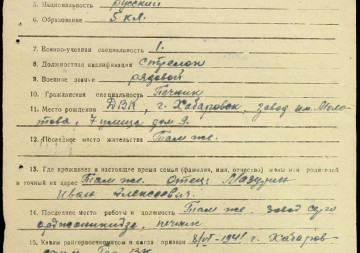 5. Национальность русский
6. Образование 5 кл.
7. Военно-учетная специальность 1.
8. Должностная квалификация стрелок
9. Военное звание рядовой
10. Гражданская специальность Печник
11. Место рождения ДВК, г. Хабаровск, завод им. Моло-
това, 7 улица дом 9.
12. Последнее место жительства Там же.
13. Где проживает в настоящее время семья (фамилия, имя, отчество) жены или родителей
и точный их адрес Там же. Отец: Мазунин
Иван Алексеевич.
14. Последнее место работы и должность Там же завод
орджоникидзе, печник
15. Каким райгорвоенкоматом и когда призван 1941 г. Хабаров-